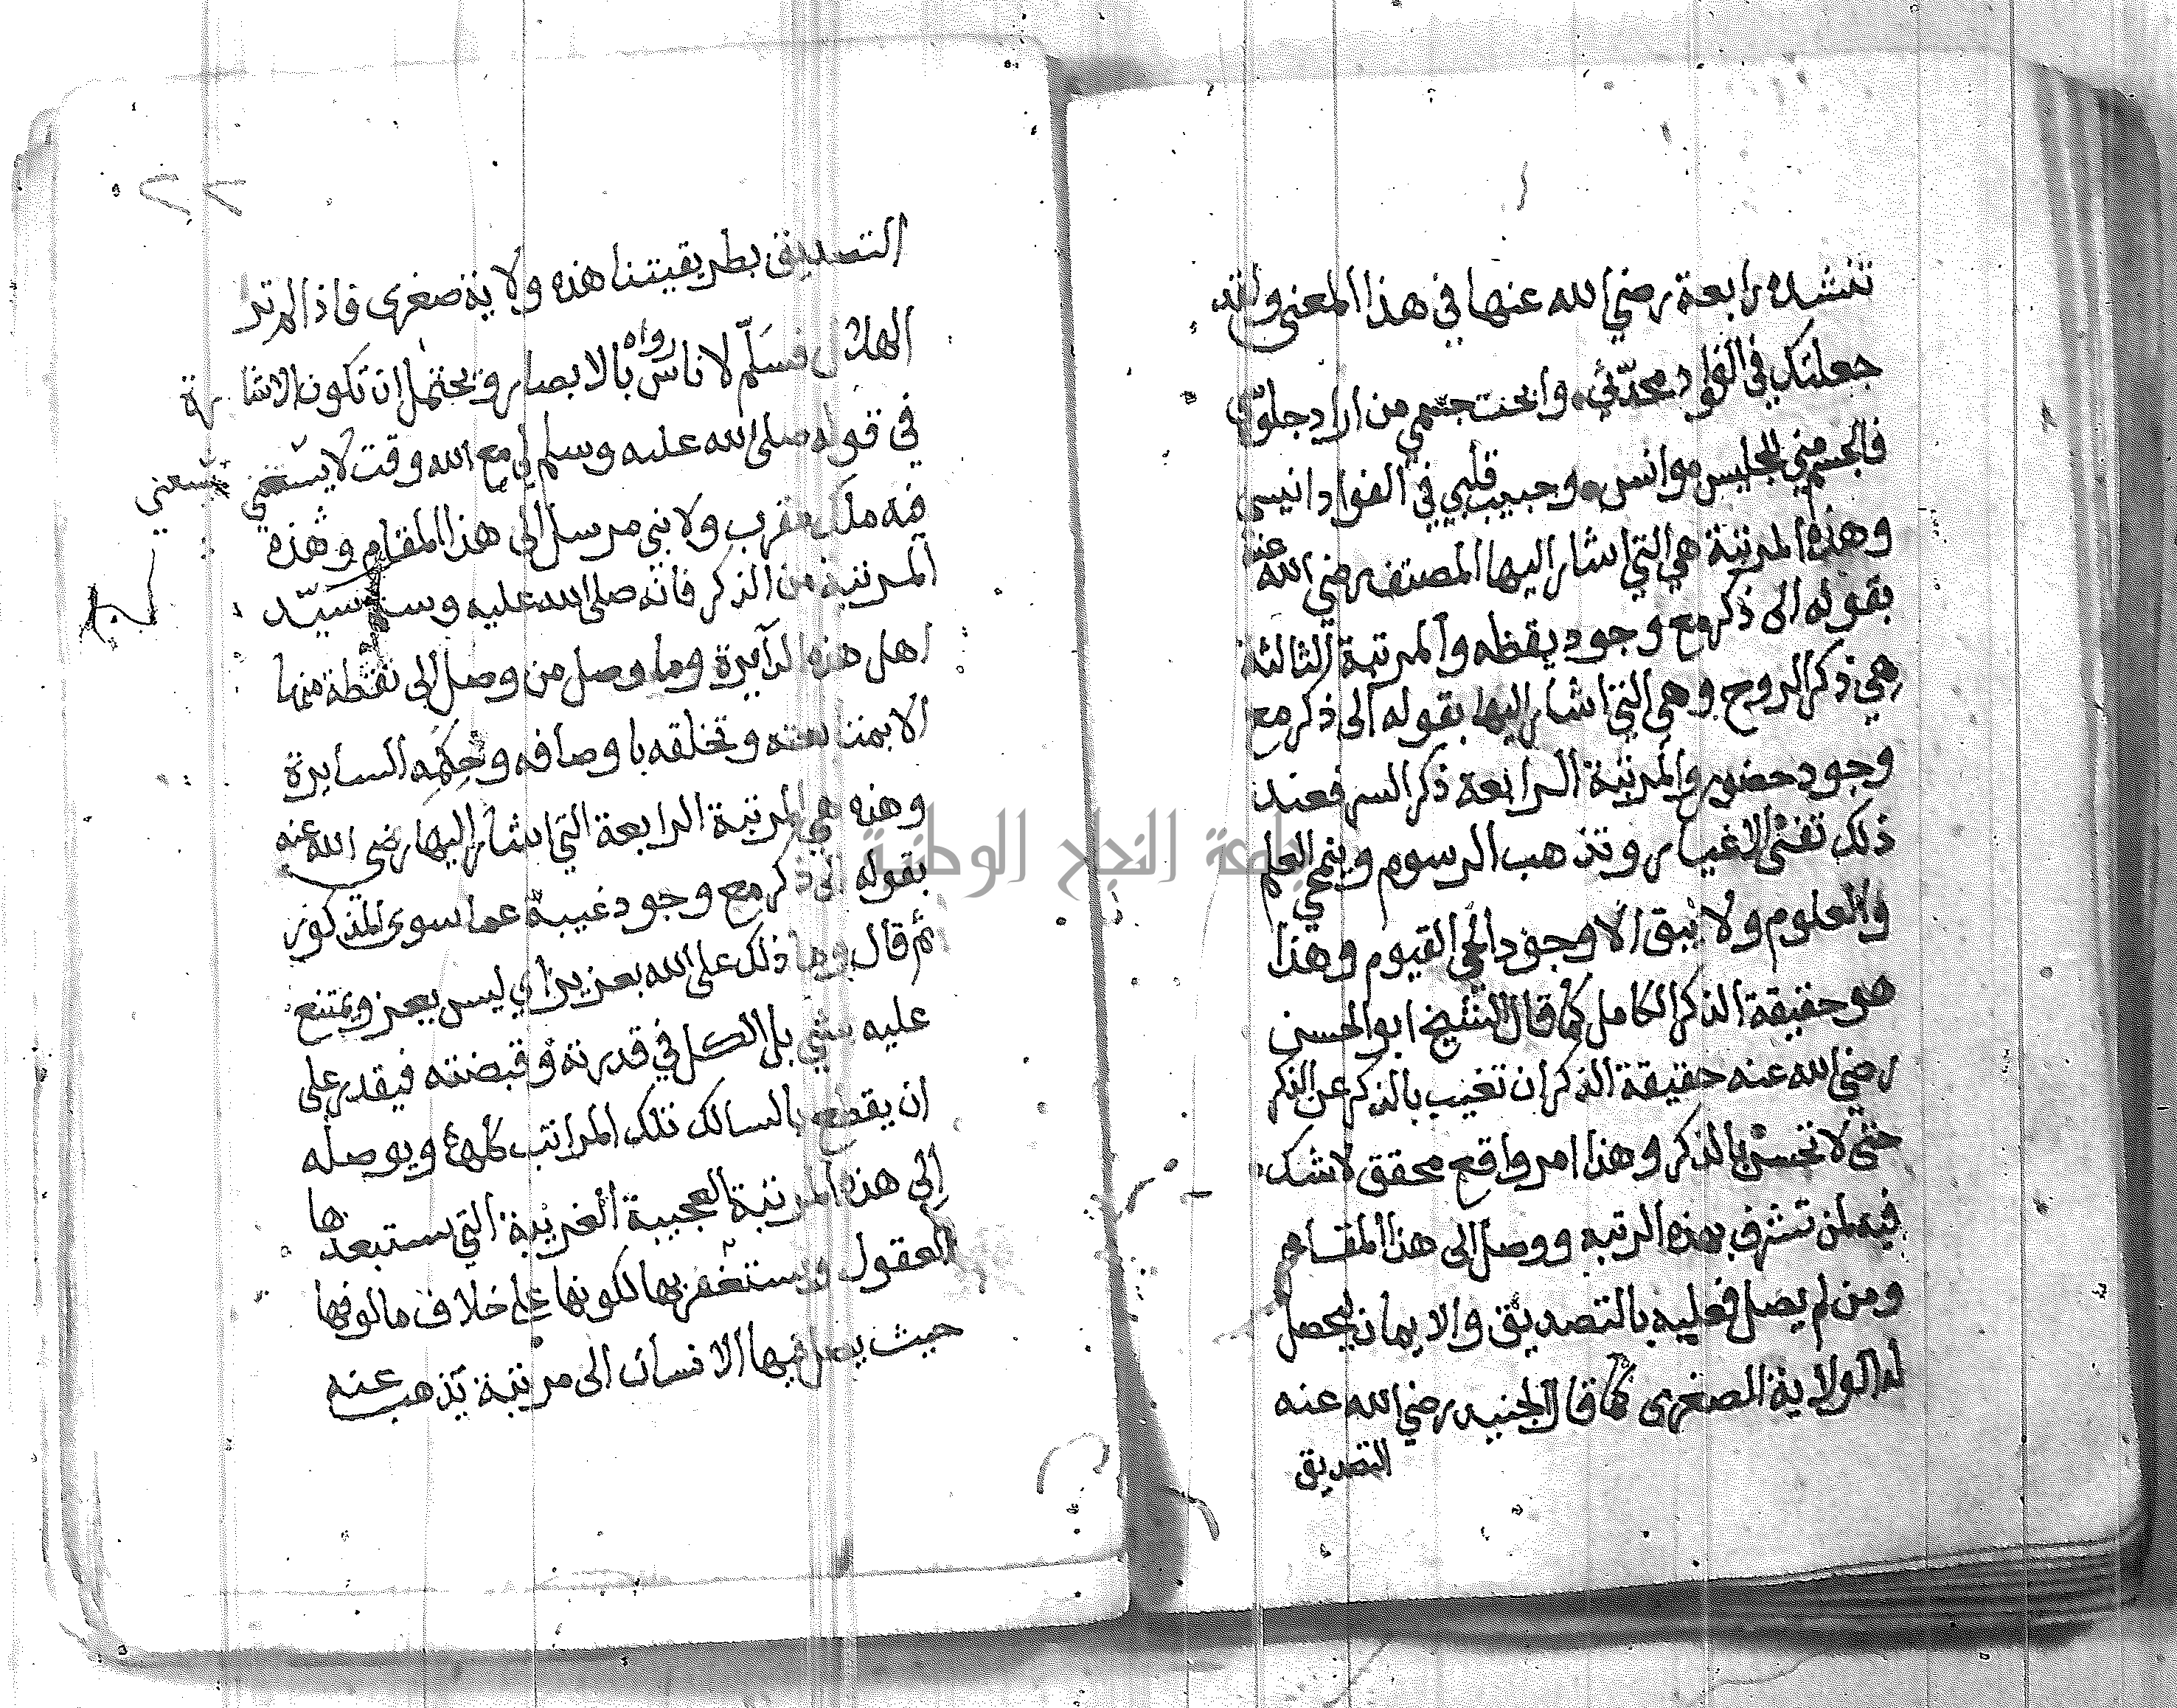 تنشده رابعة رضي الله عنها في هذا المعنى ولقد
جعلتك في الفواد محدّثي وابحت جسمي من اراد جلوسي
فالجسم مني للجليس موانس وحبيب قلبي في الفواد انيسي
وهذه المرتبة هي التي اشار اليها المصنف رضي الله عنه
بقوله الى ذكر مع وجود يقظه والمرتبة الثالثة
هي ذكر الروح وهي التي اشار اليها بقوله الى ذكر مع
وجود حضور والمرتبة الرابعة ذكر السر فعند
ذلك تفنى الاغيار وتذهب الرسوم وينمحي العلم
والعلوم ولا يبقى الا وجود الحي القيوم وهذا
هو حقيقة الذكر الكامل كما قال الشيخ ابو الحسن
رضي الله عنه حقيقة الذكر ان تغيب بالذكر عن الذكر
حتى لا تحسن بالذكر وهذا امر واقع محقق لا شك
فيه لمن تشرف بهذه الرتبه ووصل الى هذا المقام
ومن لم يصل فعليه بالتصديق والايمان ليحصل
له الولاية الصغرى كما قال الجنيد رضي الله عنه
التصديق
٢٢
التصديق بطريقيتنا هذه ولاية صغرى فاذا لم تر
الهلال فسَلّم لاناس رواه بالابصار ويحتمل ان تكون الاشارة
في قوله صلى الله عليه وسلم لي مع الله وقت لا يسعني
يسعني
فيه ملك مقرب ولا نبي مرسل الى هذا المقام وهذه
المرتبة من الذكر فانه صلى الله عليه وسلم سيّد
اهل هذه الدآيرة وما وصل من وصل الى نقطة منها
الا بمتابعته وتخلقه باوصافه وحِكَمِه السايرة
وهذه هي المرتبة الرابعة التي اشار اليها رضي الله عنه
بقوله الى ذكر مع وجود غيبة عما سوى المذكور
ثم قال وما ذلك على الله بعزيز اي ليس يعز ويمتنع
عليه شي بل الكل في قدرته وقبضته فيقدر على
ان يقطع بالسالك تلك المراتب كلها ويوصله
الى هذه المرتبة العجيبة الغريبة التي تستبعدها
العقول وتستغربها لكونها على خلاف مالوفها
حيث يصل فيها الانسان الى مرتبة يذهب عنه
جامعة النجاح الوطنية